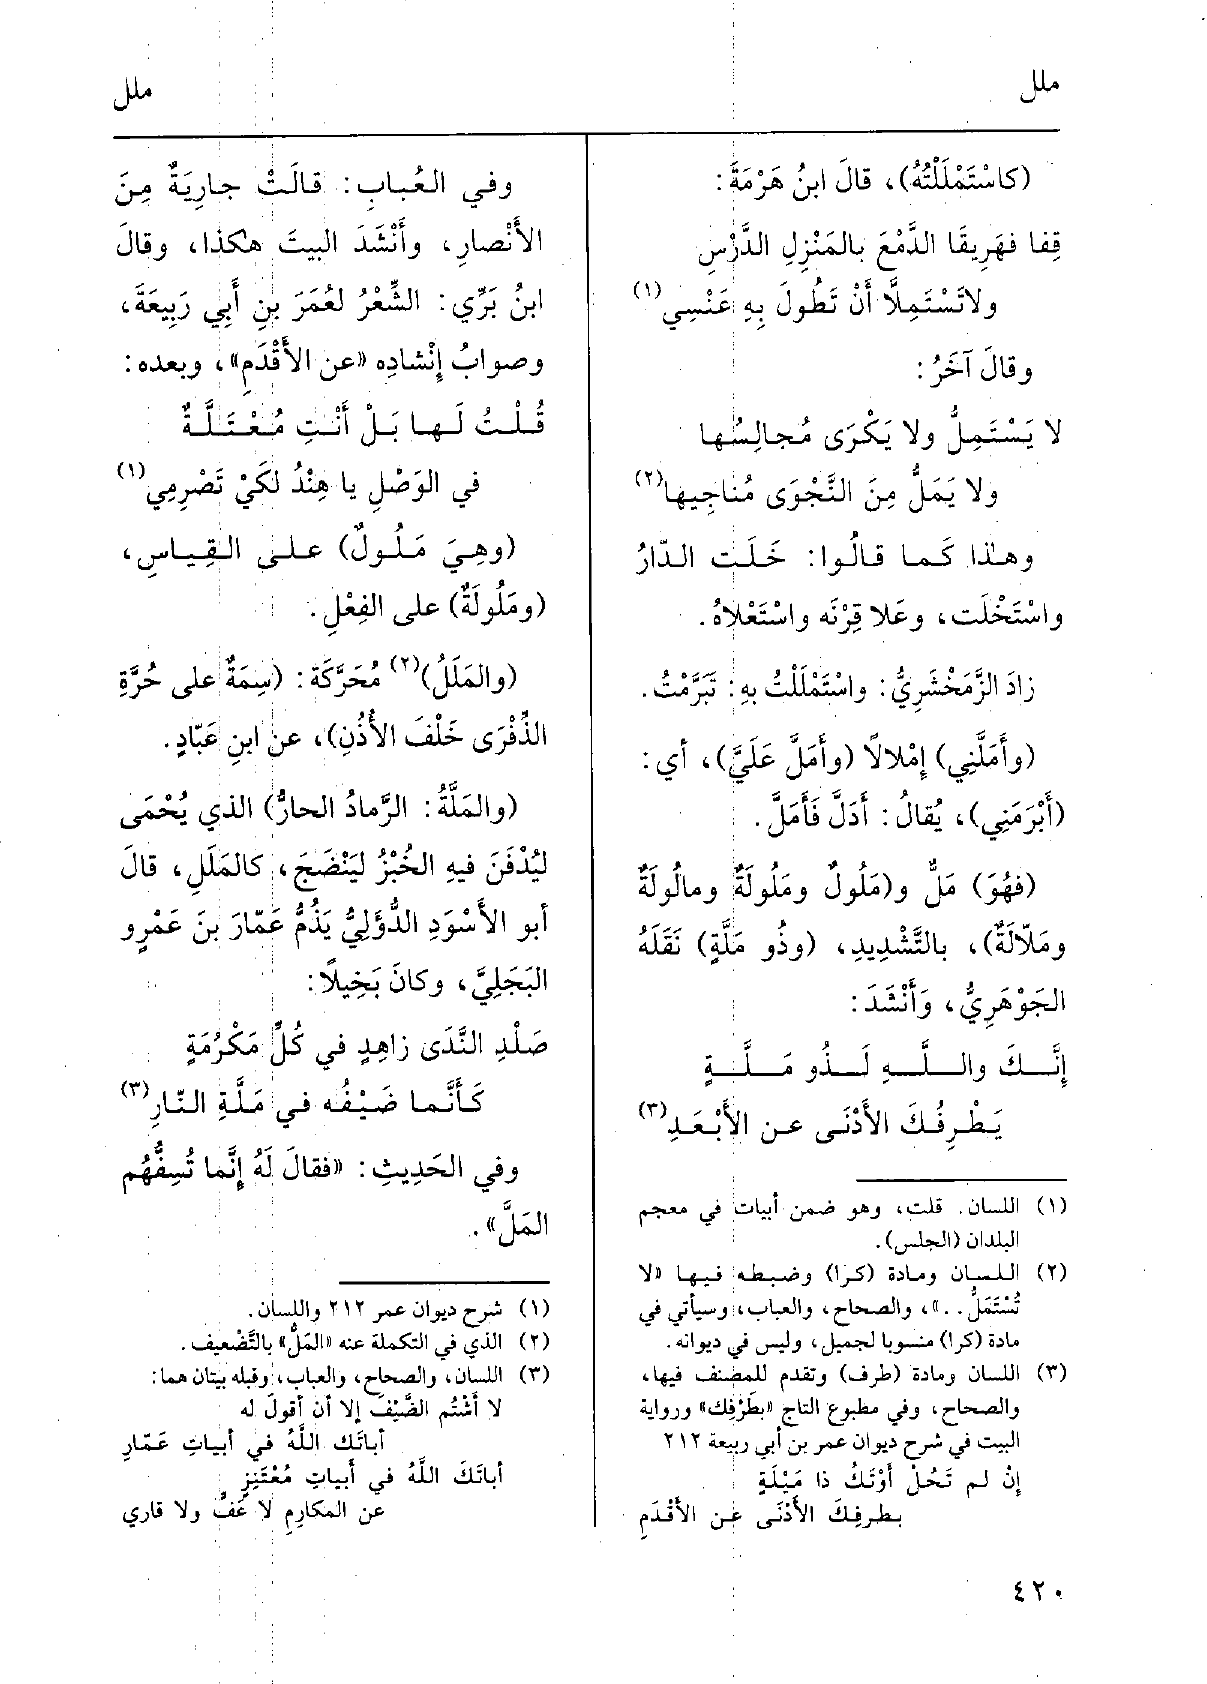 ملل
ملل
(كاسْتَمْلَلْتُهُ)، قالَ ابنُ هَرْمَةَ:
قِفا فهَرِيقَا الدَّمْعَ بالمَنْزِلِ الدَّرْسِ
ولاتَسْتَمِلَّا أَنْ تَطُولَ بِهِ عَنْسِي(١)
وقالَ آخَرُ:
لا يَسْتَمِلُّ ولا يَكْرَى مُجالِسُها
ولا يَمَلُّ مِنَ النَّجْوَى مُناجِيها(٢)
وهذا كَما قالُوا: خَلَت الدّارُ
واسْتَخْلَت، وعَلا قِرْنَه واسْتَعْلاهُ.
زادَ الزَّمَخْشَرِيُّ: واسْتَمْلَلْتُ بِهِ: تَبَرَّمْتُ.
(وأَمَلَّنِي) إِمْلالًا (وأَمَلَّ عَلَيَّ)، أي:
(أَبْرَمَنِي)، يُقالُ: أَدَلَّ فَأَمَلَّ.
(فهُوَ) مَلٌّ و(مَلُولٌ ومَلُولَةٌ ومالُولَةٌ
ومَلّالَةٌ)، بالتَّشْدِيدِ، (وذُو مَلَّةٍ) نَقَلَهُ
الجَوْهَرِيُّ، وَأَنْشَدَ:
إِنَّـكَ واللَّـهِ لَـذُو مَـلَّـةٍ
يَطْرِفُكَ الأَدْنَى عن الأَبْعَدِ(٣)
(١) اللسان. قلت، وهو ضمن أبيات في معجم
البلدان (الجلس).
(٢) اللسان ومادة (كرا) وضبطه فيها «لا
تُسْتَمَلُّ..»، والصحاح، والعباب، وسيأتي في
مادة (كرا) منسوبا لجميل، وليس في ديوانه.
(٣) اللسان ومادة (طرف) وتقدم للمصنف فيها،
والصحاح، وفي مطبوع التاج «بطَرْفِك» ورواية
البيت في شرح ديوان عمر بن أبي ربيعة ٢١٢
إنْ لم تَحُلْ أوْتَكُ ذا مَيْلَةٍ
بطرفِكَ الأَدْنَى عَن الأَقْدَمِ
وفي العُبابِ: قالَتْ جارِيَةٌ مِنَ
الأَنْصارِ، وأَنْشَدَ البيتَ هكذا، وقالَ
ابنُ بَرِّي: الشِّعْرُ لعُمَرَ بنِ أَبِي رَبِيعَةَ،
وصوابُ إِنْشادِه «عن الأَقْدَمِ»، وبعده:
قُلْتُ لَها بَلْ أَنْتِ مُعْتَلَّةٌ
في الوَصْلِ يا هِنْدُ لكَيْ تَصْرِمِي(١)
(وهِيَ مَلُولٌ) على القِياسِ،
(ومَلُولَةٌ) على الفِعْلِ.
(والمَلَلُ)(٢) مُحَرَّكَة: (سِمَةٌ على حُرَّةِ
الذِّفْرَى خَلْفَ الأُذُنِ)، عن ابنِ عَبّادٍ.
(والمَلَّةُ: الرَّمادُ الحارُّ) الذي يُحْمَى
ليُدْفَنَ فيهِ الخُبْزُ ليَنْضَجَ، كالمَلَلِ، قالَ
أبو الأَسْوَدِ الدُّؤَلِيُّ يَذُمُّ عَمّارَ بنَ عَمْرِو
البَجَلِيَّ، وكانَ بَخِيلًا:
صَلْدِ النَّدَى زاهِدٍ في كُلِّ مَكْرُمَةٍ
كَأَنَّما ضَيْفُه في مَلَّةِ النّارِ(٣)
وفي الحَدِيثِ: «فقالَ لَهُ إِنَّما تُسِفُّهُم
المَلَّ».
(١) شرح ديوان عمر ٢١٢ واللسان.
(٢) الذي في التكملة عنه «المَلُّ» بالتَّضْعيف.
(٣) اللسان، والصحاح، والعباب، وقبله بيتان هما:
لا أَشْتُم الضَّيْفَ إلا أن أقولَ له
أباتَك اللَّهُ في أبياتِ عَمّارِ
أباتَكَ اللَّهُ في أبياتِ مُعْتَنِزٍ
عن المكارِمِ لا عَفٍّ ولا قاري
٤٢٠